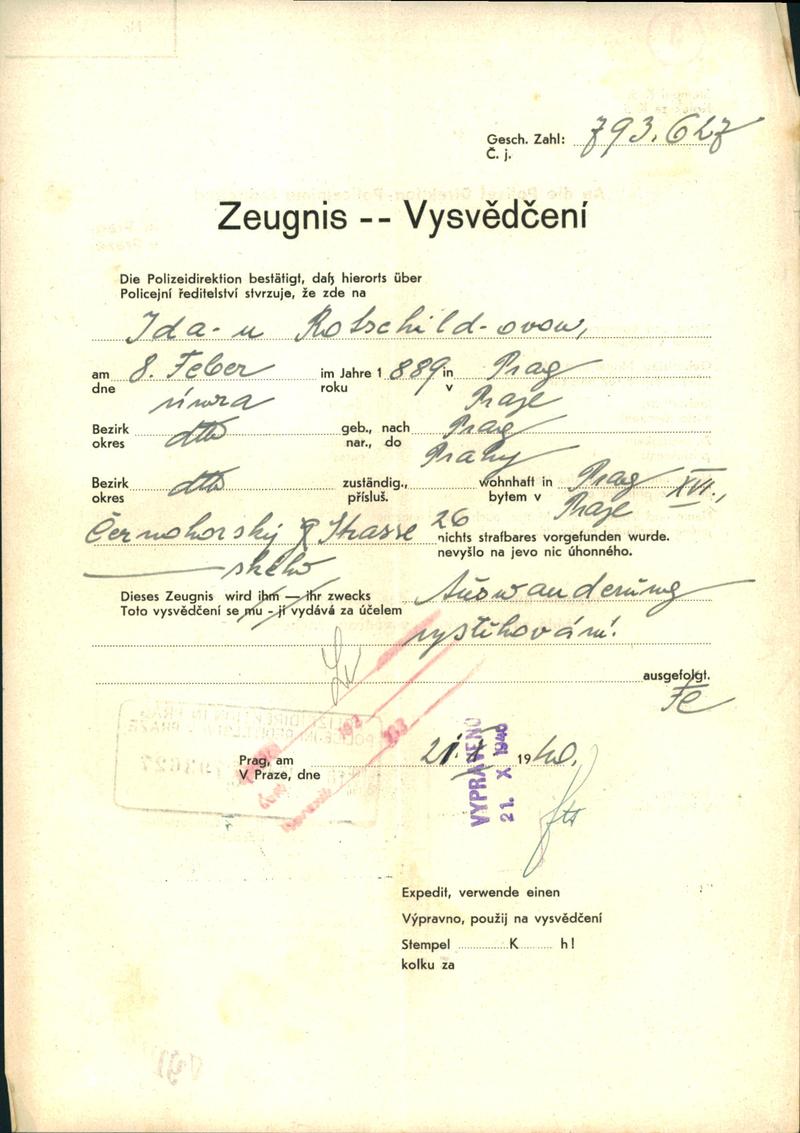 Gesch. Zahl: 793.627
Č. j.
Zeugnis -- Vysvědčení
Die Polizeidirektion bestätigt, daß hierorts über
Policejní ředitelství stvrzuje, že zde na
Ida-u Rotschild-ovou,
am 8. Feber im Jahre 1889 in Prag
dne února roku v Praze
Bezirk dtto geb., nach Prag
okres nar., do Prahy
Bezirk dtto zuständig., wohnhaft in Prag XVI.,
okres přísluš. bytem v Praze
Černohorský Strasse 26 nichts strafbares vorgefunden wurde.
ského nevyšlo na jevo nic úhonného.
Dieses Zeugnis wird ihm — ihr zwecks Auswanderung
Toto vysvědčení se mu - jí vydává za účelem
vystěhování.
ausgefolgt.
Prag, am 21. X 1940.
V Praze, dne
VYPRAVENO
21. X 1940
Expedit, verwende einen
Výpravno, použij na vysvědčení
Stempel K h!
kolku za